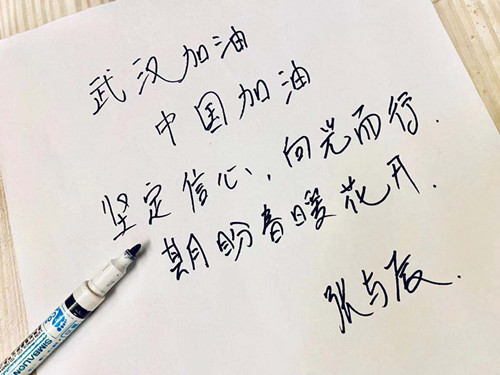 武汉加油
中国加油
坚定信心，向光而行．
期盼春暖花开．
张与辰．
SIMBALION